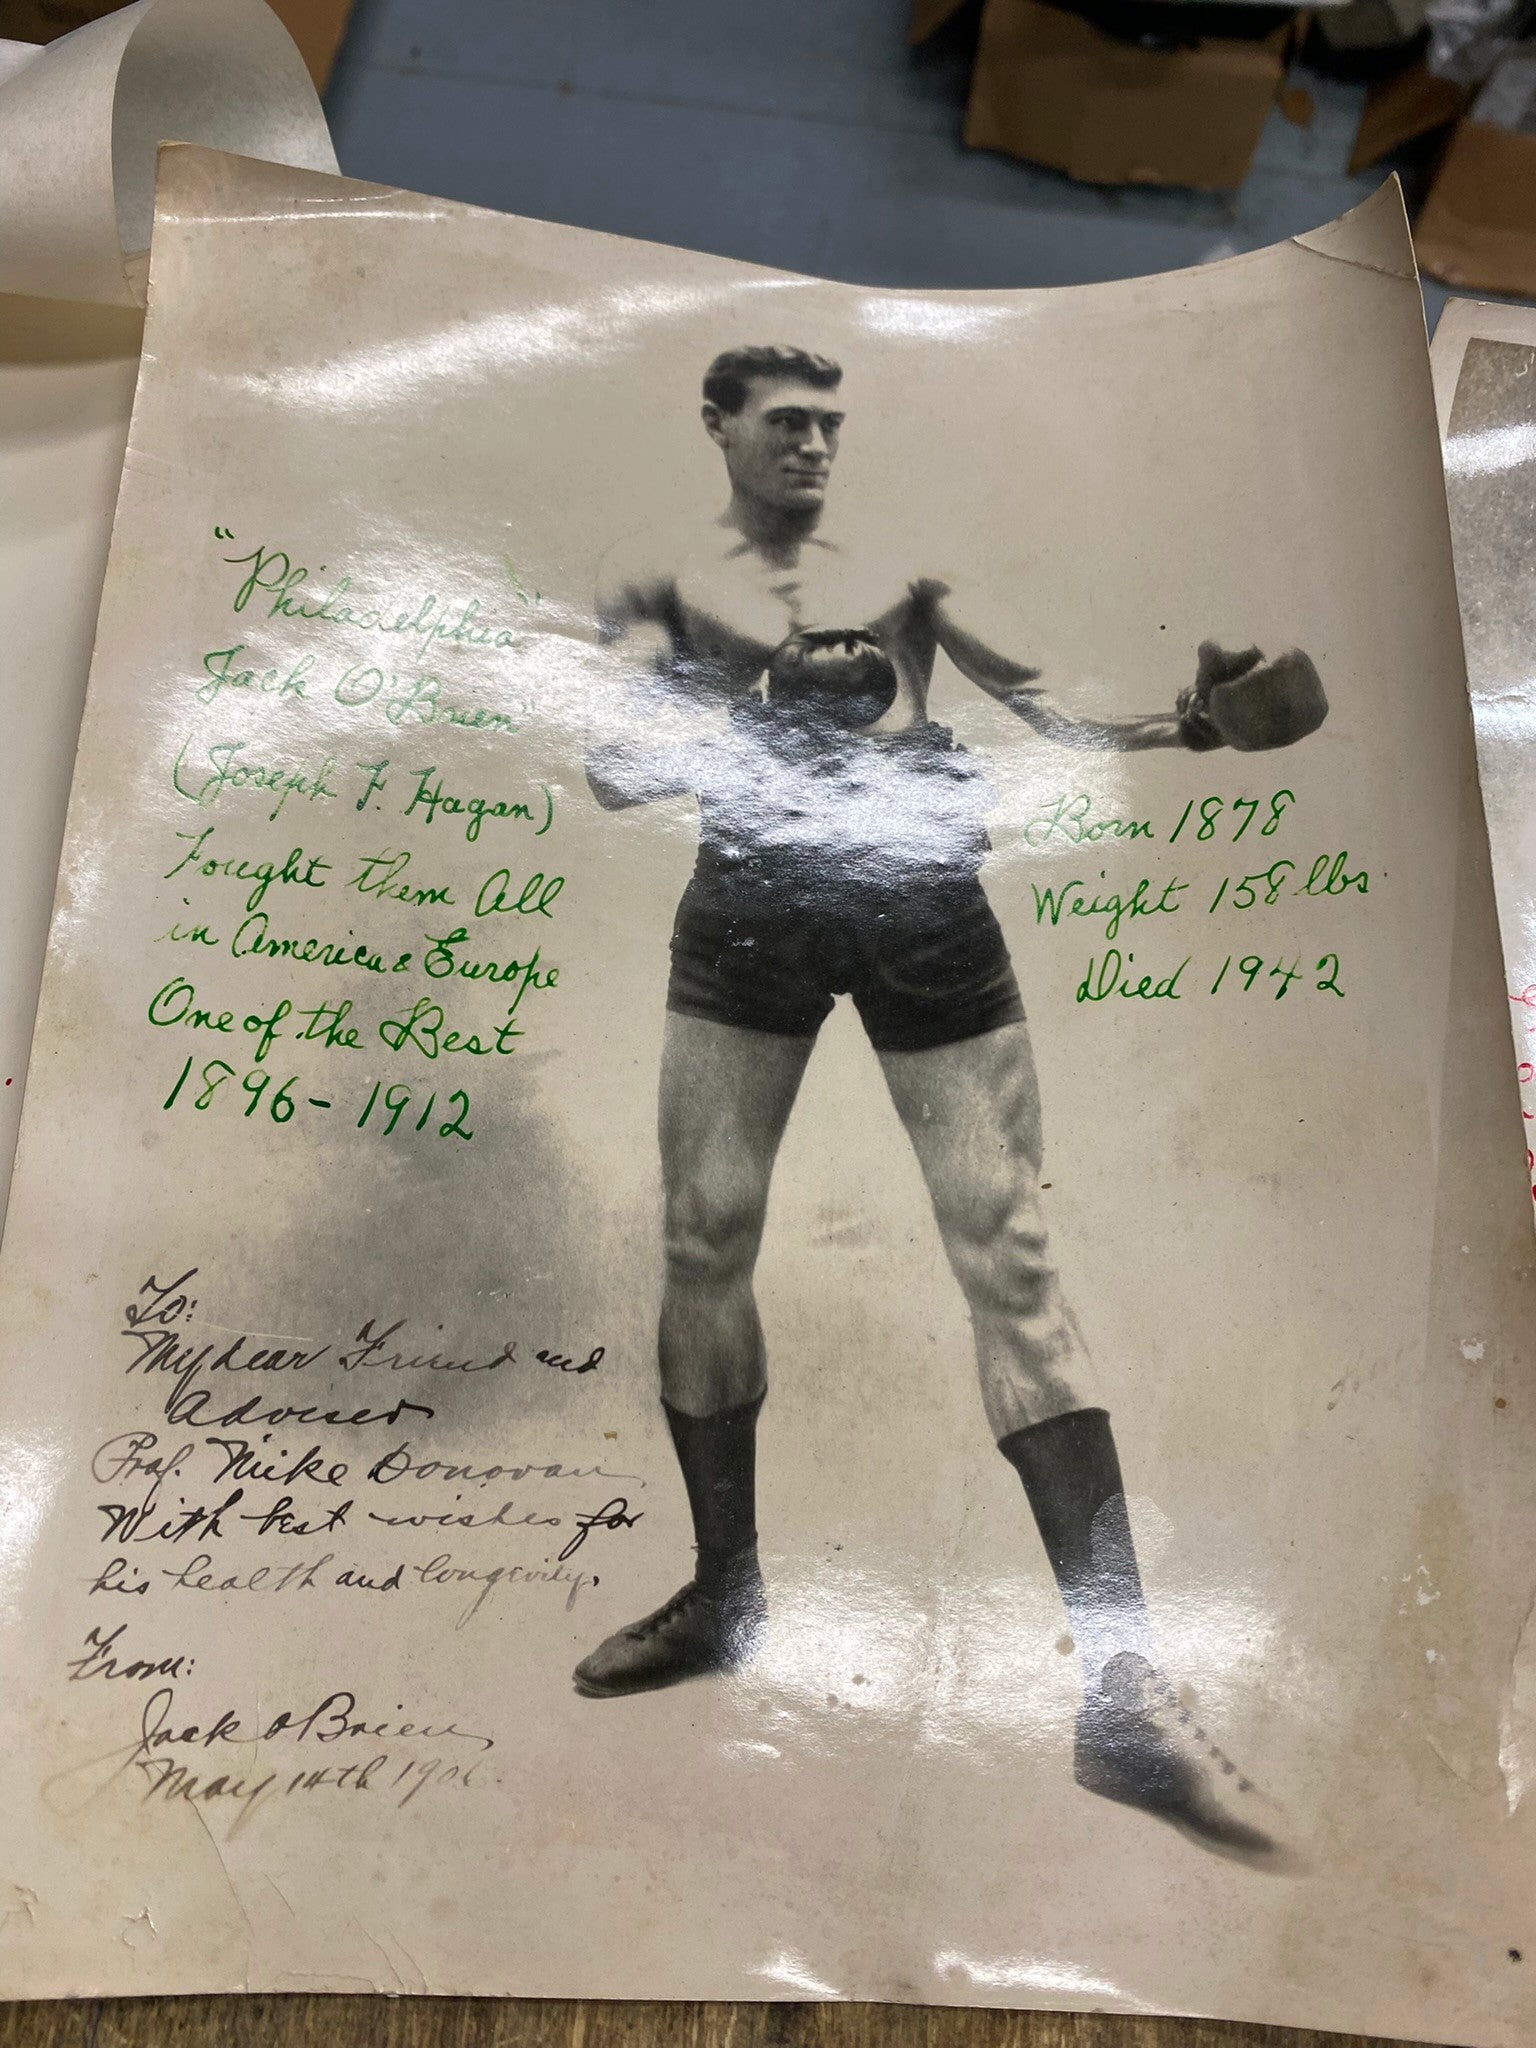 "Philadelphia"
Jack O'Brien"
(Joseph F. Hagan)
Fought them All
in America & Europe
One of the Best
1896-1912
Born 1878
Weight 158 lbs.
Died 1942
To:
My dear Friend and
Adviser
Prof. Mike Donovan
With best wishes for
his health and longevity.
From:
Jack O'Brien
May 14th 1906.